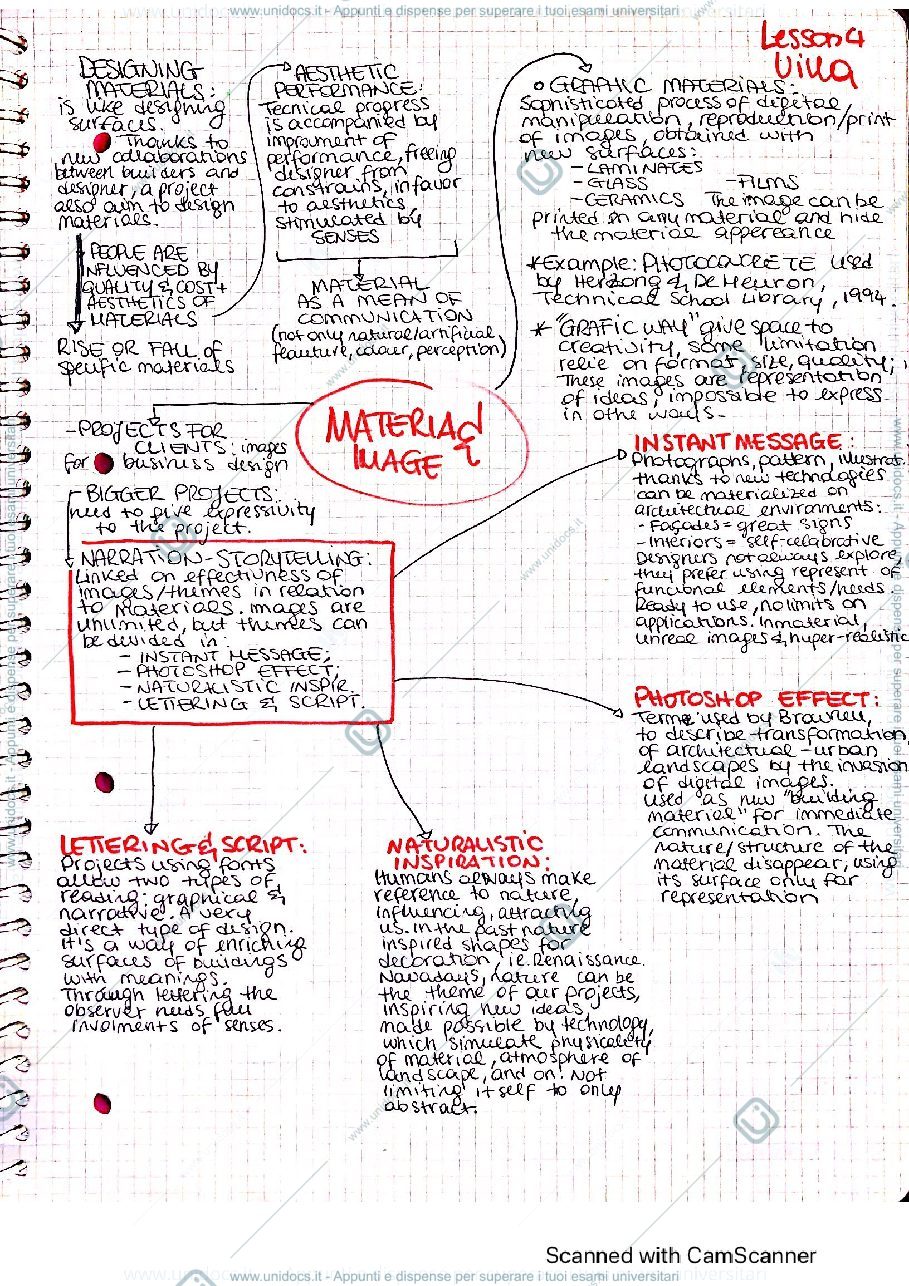 www.unidocs.it - Appunti e dispense per superare i tuoi esami universitari
Lesson 4
Villa
DESIGNING
MATERIALS:
is like designing
surfaces.
Thanks to
new collaborations
between builders and
designer, a project
also aim to design
materials.
PEOPLE ARE
INFLUENCED BY
QUALITY & COST +
AESTHETICS OF
MATERIALS
RISE OR FALL OF
specific materials
AESTHETIC
PERFORMANCE:
Tecnical progress
is accompanied by
improument of
performance, freeing
designer from
constrains, in favor
to aesthetics,
stimulated by
SENSES
MATERIAL
AS A MEAN OF
COMMUNICATION
(not only natural/artificial,
feauture, colour, perception)
GRAPHIC MATERIALS:
Sophisticated process of digital
manipulation, reproduction/print
of images, obtained with
new surfaces:
- LAMINATES
- GLASS - FILMS
- CERAMICS The image can be
printed on any material and hide
the material appereance
*Example: PHOTOCONCRETE used
by Herzong & De Meuron,
Technical School Library, 1994.
* "GRAFIC WAY" give space to
creativity, some limitation
relie on format, size, quality;
These images are representation
of ideas, impossible to express
in othe words-
MATERIAL
IMAGE
- PROJECTS FOR
CLIENTS: images
for business design
- BIGGER PROJECTS:
need to give expressivity
to the project.
NARRATION-STORYTELLING:
Linked on effectivness of
images/themes in relation
to materials. Images are
unlimited, but themes can
be divided in:
- INSTANT MESSAGE;
- PHOTOSHOP EFFECT;
- NATURALISTIC INSPIR.
- LETTERING & SCRIPT.
INSTANT MESSAGE:
Photographs, pattern, illustrat.
thanks to new technologies
can be materialized on
architectual environments:
- Façades = great signs
- Interiors = "self-celabrative
Designers not always explore,
they prefer using represent of
funcional elements/needs.
Ready to use, no limits on
applications. Inmaterial,
unreal images &, hyper-realistic
PHOTOSHOP EFFECT:
Terme used by
to describe transformation
of architectual - urban
landscapes by the invasion
of digital images.
Used as new "building
material" for immediate
communication. The
nature/structure of the
material disappear, using
its surface only for
representation
LETTERING & SCRIPT:
Projects using fonts
allow two types of
reading: graphical &
narrative. A very
direct type of design.
It's a way of enriching
surfaces of buildings
with meanings.
Through lettering the
observer needs full
involments of senses.
NATURALISTIC
INSPIRATION:
Humans always make
reference to nature,
influencing, attracting
us. In the past nature
inspired shapes for
decoration, ie. Renaissance.
Nowadays, nature can be
the theme of our projects,
inspiring new ideas,
made possible by technology,
which simulate physicality
of material, atmosphere of
landscape, and on. Not
limiting itself to only
abstract.
Scanned with CamScanner
www.unidocs.it - Appunti e dispense per superare i tuoi esami universitari